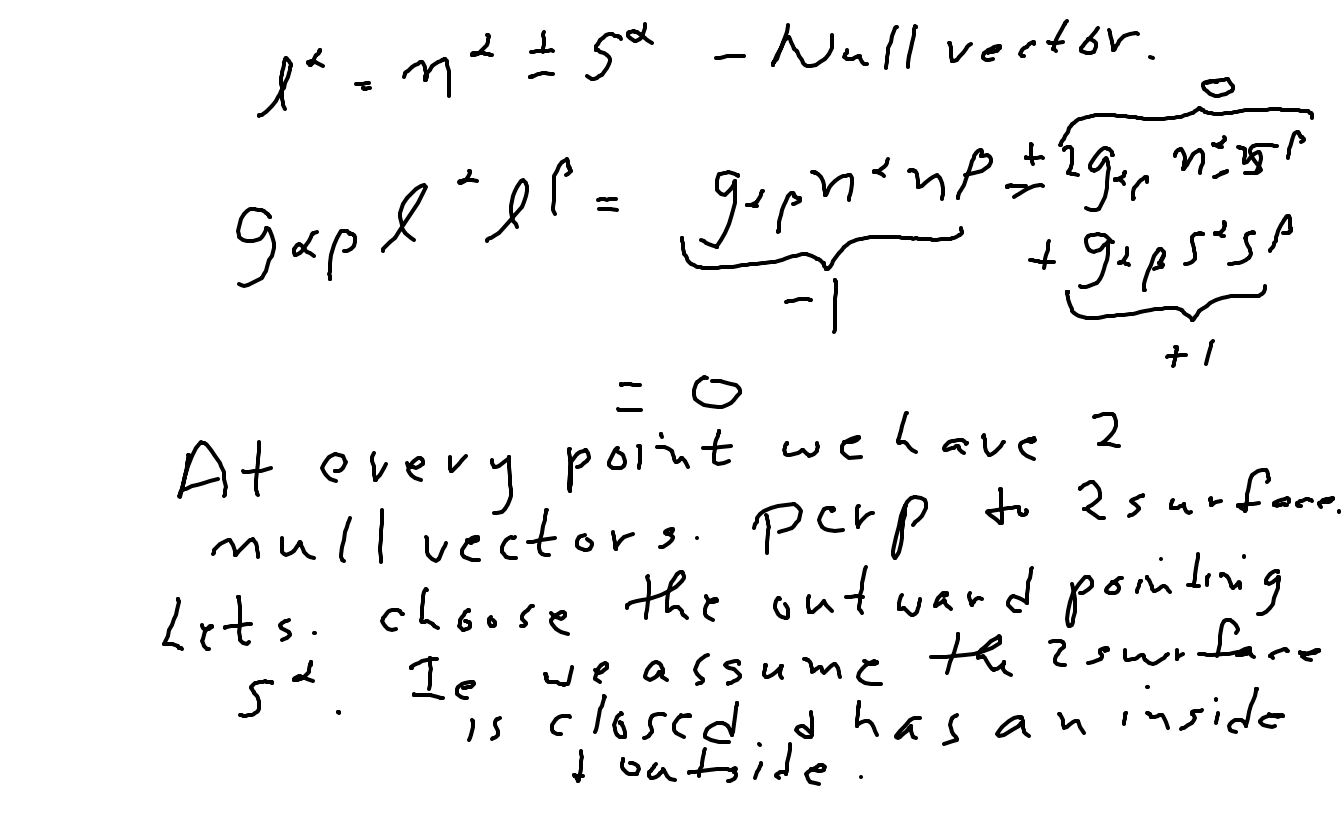 l^α = n^α ± s^α – Null vector.
0
g_αβ l^α l^β = g_αβ n^α n^β ± 2g_αβ n^α s^β
+ g_αβ s^α s^β
-1
+1
= 0
At every point we have 2
null vectors. perp to 2 surface.
Lets. choose the outward pointing
s^α. Ie we assume the 2 surface
is closed & has an inside
& outside.